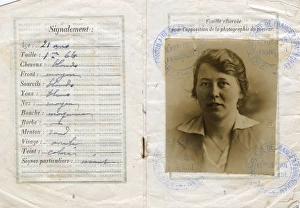 Signalement :
Age : 21 ans
Taille : 1m 66
Cheveux : blonds
Front : moyen
Sourcils : blonds
Yeux : bleus
Nez : moyen
Bouche : moyenne
Barbe :
Menton : rond
Visage : ovale
Teint : coloré
Signes particuliers : néant
Feuille réservée
pour l'apposition de la photographie du porteur.